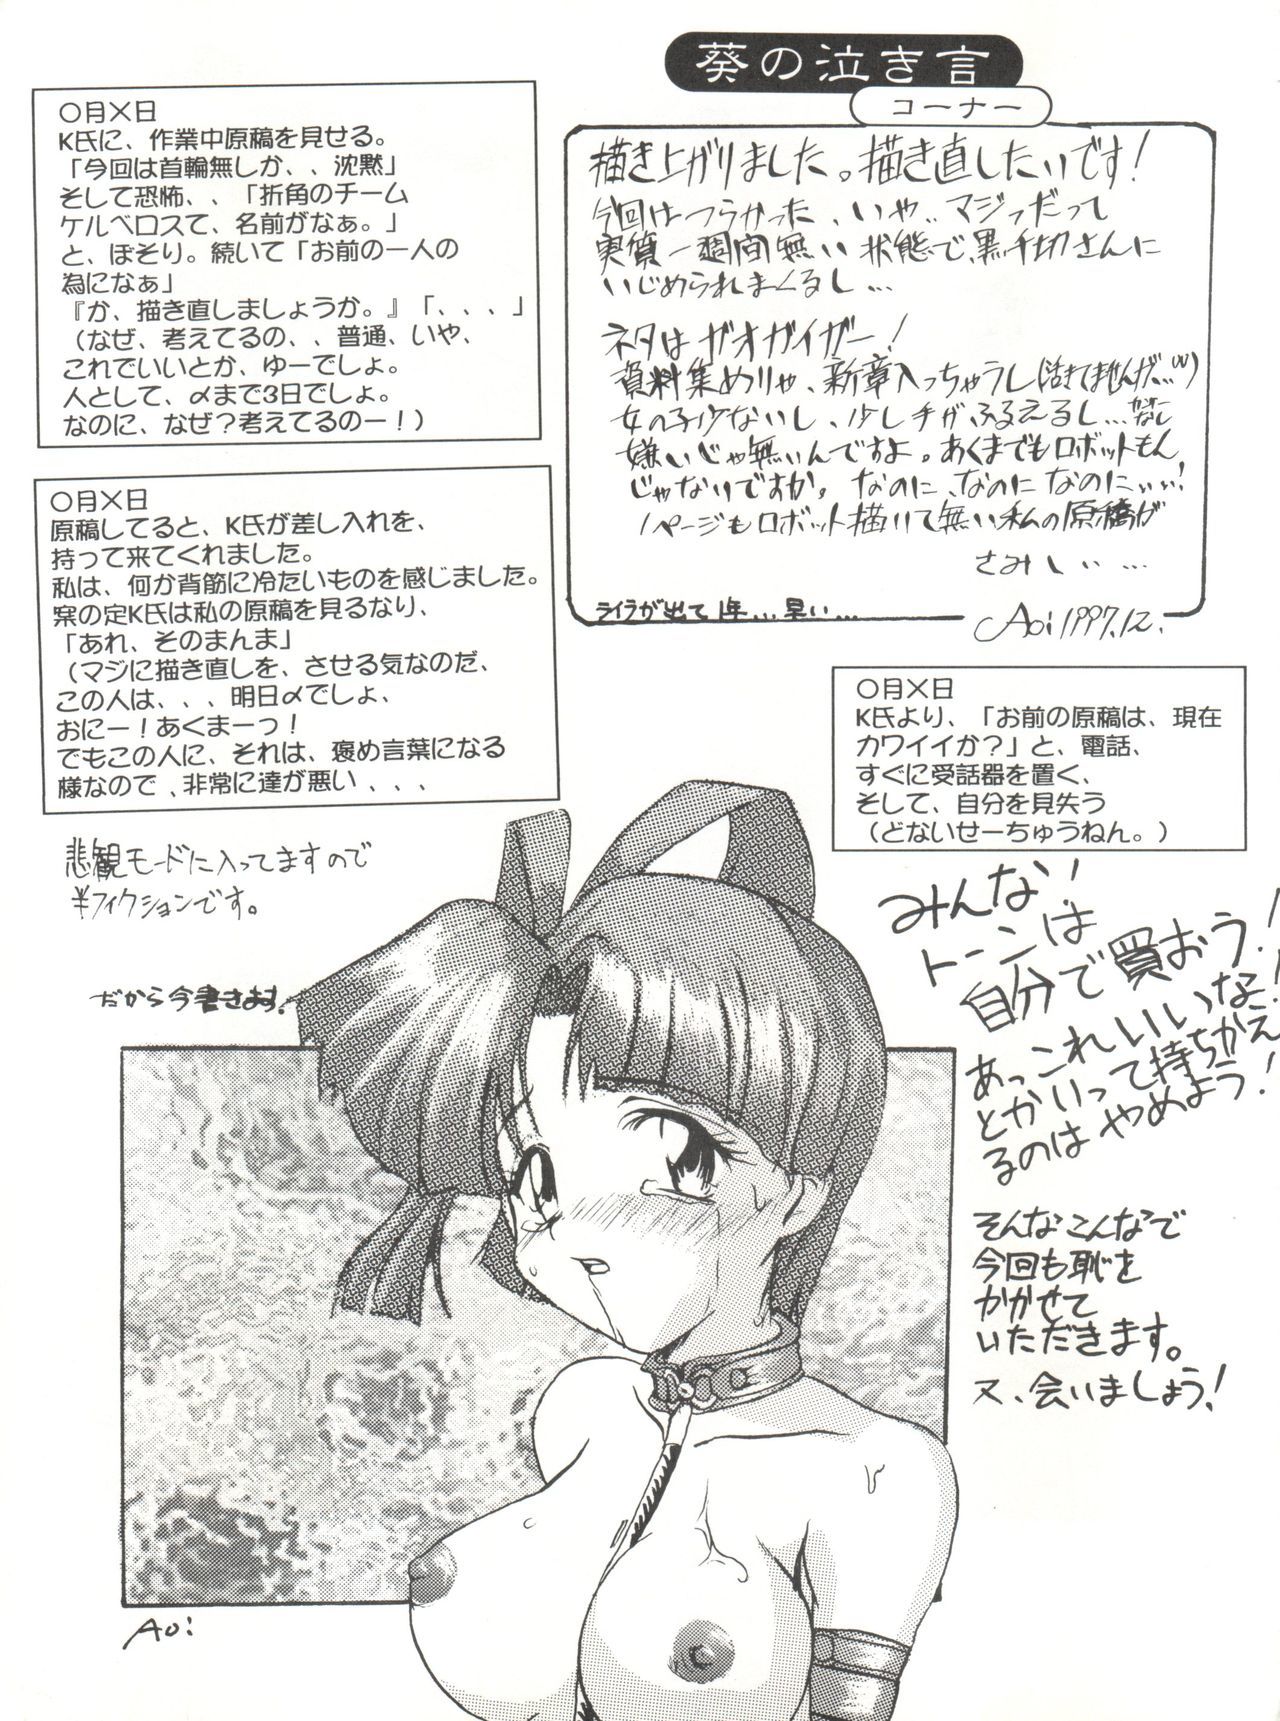 葵の泣き言
コーナー
〇月×日
K氏に、作業中原稿を見せる。
「今回は首輪無しか、、沈黙」
そして恐怖、、「折角のチーム
ケルベロスて、名前がなぁ。」
と、ぼそり。続いて「お前の一人の
為になぁ」
『か、描き直しましょうか。』「、、、」
（なぜ、考えてるの、、普通、いや、
これでいいとか、ゆーでしょ。
人として、〆まで3日でしょ。
なのに、なぜ？考えてるのー！）
描き上がりました。描き直したいです！
今回はつらかった、いや、マジっだって
実質一週間無い状態で、黒千切さんに
いじめられまくるし…
ネタはガオガイガー！
資料集めりゃ、新章入っちゃうし(活きてませんげ…(W)
女の子少ないし、少し手がふるえるし…
嫌いじゃ無いんですよ。あくまでもロボットもん
じゃないですか。なのに、なのになのにぃぃ！
1ページもロボット描いて無い私の原稿が
さみしぃ…
ライラが出て1年…早い…
Aoi 1997.12.
〇月×日
原稿してると、K氏が差し入れを、
持って来てくれました。
私は、何か背筋に冷たいものを感じました。
案の定K氏は私の原稿を見るなり、
「あれ、そのまんま」
（マジに描き直しを、させる気なのだ、
この人は、、、明日〆でしょ、
おにー！あくまーっ！
でもこの人に、それは、褒め言葉になる
様なので、非常に達が悪い、、、
〇月×日
K氏より、「お前の原稿は、現在
カワイイか？」と、電話、
すぐに受話器を置く、
そして、自分を見失う
（どないせーちゅうねん。）
悲観モードに入ってますので
半フィクションです。
だから今書きます！
みんな！
トーンは
自分で買おう！
あっこれいいな！
とかいって持ちかえ
るのはやめよう！
そんなこんなで
今回も恥を
かかせて
いただきます。
又、会いましょう！
Aoi